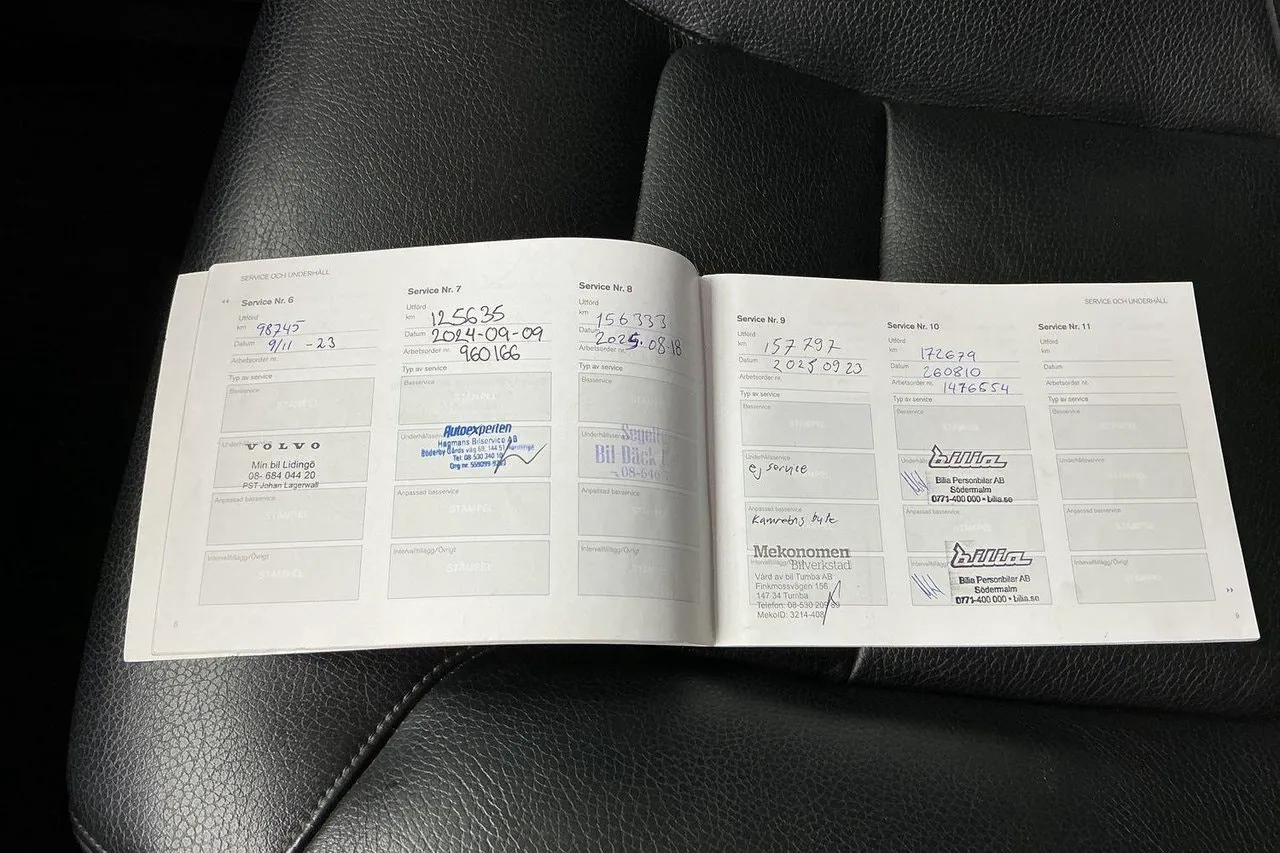 SERVICE OCH UNDERHÅLL
Service Nr. 6
Utförd
km 98745
Datum 9/11 -23
Arbetsorder nr.
Typ av service
Basservice
STÄMPEL
VOLVO
Min bil Lidingö
08- 684 044 20
PST Johan Lagerwall
Anpassad basservice
STÄMPEL
Intervalltillägg/Övrigt
STÄMPEL
6
Service Nr. 7
Utförd
km 125635
Datum 2024-09-09
Arbetsorder nr. 960166
Typ av service
Basservice
STÄMPEL
Autoexperten
Hagmans Bilservice AB
Tel: 08 530 340
Anpassad basservice
STÄMPEL
Intervalltillägg/Övrigt
STÄMPEL
Service Nr. 8
Utförd
km 156333
Datum 2025.08.18
Arbetsorder nr.
Typ av service
Basservice
STÄMPEL
Bil Däck
Anpassad basservice
Intervalltillägg/Övrigt
SERVICE OCH UNDERHÅLL
Service Nr. 9
Utförd
km 157797
Datum 20250923
Arbetsorder nr.
Typ av service
Basservice
Underhållsservice
ej service
Anpassad basservice
Kamrems byte
Mekonomen
Bilverkstad
Vård av bil Tumba AB
Finkmossvägen 156
147 34 Tumba
Telefon: 08-530 209 89
MekoID: 3214-408
Service Nr. 10
Utförd
km 172679
Datum 260810
Arbetsorder nr. 1476554
Typ av service
Basservice
bilia
Bilia Personbilar AB
Södermalm
0771-400 000 • bilia.se
Anpassad basservice
STÄMPEL
bilia
Bilia Personbilar AB
Södermalm
0771-400 000 • bilia.se
Service Nr. 11
Utförd
km
Datum
Arbetsorder nr.
Typ av service
Basservice
STÄMPEL
Underhållsservice
STÄMPEL
Anpassad basservice
STÄMPEL
Intervalltillägg/Övrigt
STÄMPEL
9